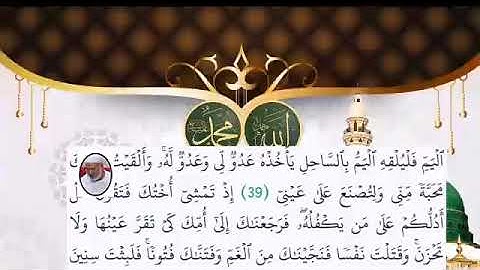 الله
محمد
اَ۬لْيَمِّ فَلْيُلْقِهِ اِ۬لْيَمُّ بِالسَّاحِلِ يَأْخُذْهُ عَدُوٌّ لِّى وَعَدُوٌّ لَّهُۥۖ وَأَلْقَيْتُ
مَحَبَّةً مِّنِّى وَلِتُصْنَعَ عَلَىٰ عَيْنِىَ (39) إِذْ تَمْشِىٓ أُخْتُكَ فَتَقُولُ
أَدُلُّكُمْ عَلَىٰ مَن يَكْفُلُهُۥۖ فَرَجَعْنَٰكَ إِلَىٰٓ أُمِّكَ كَىْ تَقَرَّ عَيْنُهَا وَلَا
تَحْزَنَۖ وَقَتَلْتَ نَفْسًا فَنَجَّيْنَٰكَ مِنَ اَ۬لْغَمِّ وَفَتَنَّٰكَ فُتُونًاۖ فَلَبِثْتَ سِنِينَ